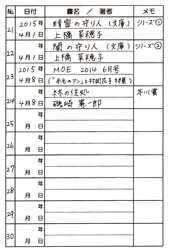 年 書名 / 著者 メモ
21 2015年 蜂蜜の守り人 (文庫) シリーズ①
4月1日 上橋菜穂子
22 年 闇の守り人 (文庫) シリーズ②
月1日 上橋菜穂子
23 2015年 MOE 2014.6月号
4月8日 (『赤毛のアン』と村岡花子 特集)
24 年 終の住処 芥川賞
4月8日 磯﨑憲一郎
25 年
月 日
26 年
月 日
27 年
月 日
28 年
月 日
29 年
月 日
30 年
月 日